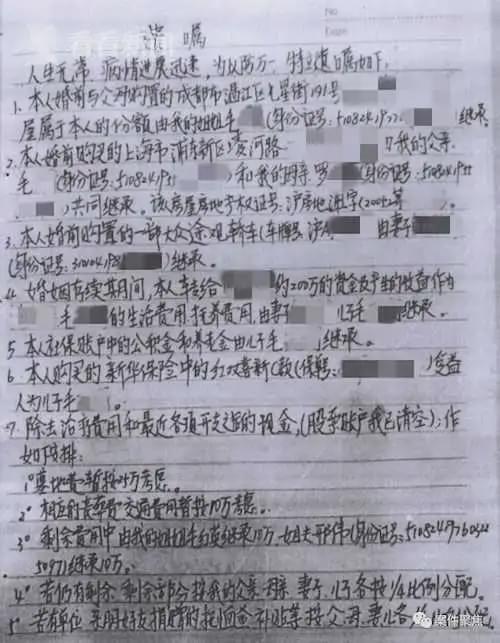 No
Date
看看新闻
遗嘱
人生无常，病情进展迅速，为以防万一，特立遗嘱如下：
1. 本人婚前与父母购置的成都市温江区七星街191号
屋属于本人的份额由我的姐姐毛 (身份证号：5108241972 )继承。
2. 本人婚前购买的上海市浦东新区凌河路 由我的父亲
毛 (身份证号：510824195 )和我的母亲罗 (身份证号：510824195
)共同继承。该房屋房地产权证号：沪房地浦字(2005)第
3. 本人婚前购置的一部大众途观轿车(车牌号：沪A 由妻子
(身份证号：310104198 )继承。
4. 婚姻存续期间，本人转给 约200万的资金及产生的收益作为
毛 的生活费用、抚养费用，由妻子 、儿子毛 继承。
5 本人社保账户中的公积金和养老金由儿子毛 继承。
6 本人购买的新华保险中的红双喜新C款(保额： )受益
人为儿子毛 。
7. 除去治疗费用和最近各项开支之后的现金，(股票账户我已清空)；作
如下安排：
1° 墓地费暂按 万考虑。
2° 相应的丧葬费、交通费用暂按10万考虑。
3° 剩余费用中由我的姐姐毛 英继承10万，姐夫邢伟(身份证号：510824197
5097)继承10万。
4° 若仍有剩余，剩余部分按我的父亲、母亲、妻子、儿子各按1/4比例分配。
5° 若有单位、亲朋好友捐赠的抚恤金、补贴等按父、母、妻、儿各
案件聚焦